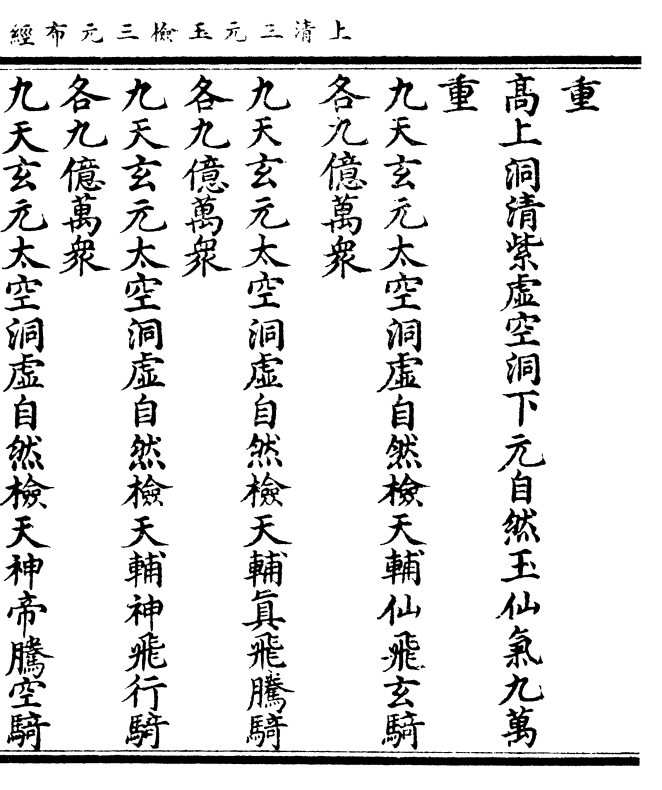 上清三元玉檢三元布經
重
高上洞清紫虛空洞下元自然玉仙氣九萬
重
九天玄元太空洞虛自然檢天輔仙飛玄騎
各九億萬衆
九天玄元太空洞虛自然檢天輔眞飛騰騎
各九億萬衆
九天玄元太空洞虛自然檢天輔神飛行騎
各九億萬衆
九天玄元太空洞虛自然檢天神帝騰空騎